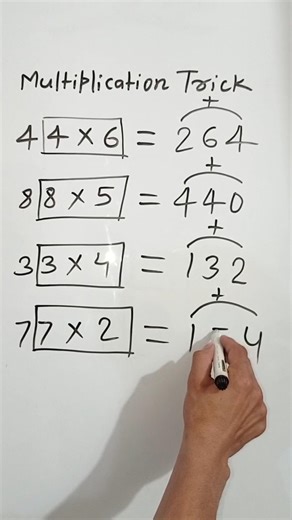 Multiplication Trick
+
44 × 6 = 264
+
88 × 5 = 440
+
33 × 4 = 132
+
77 × 2 = 1 4